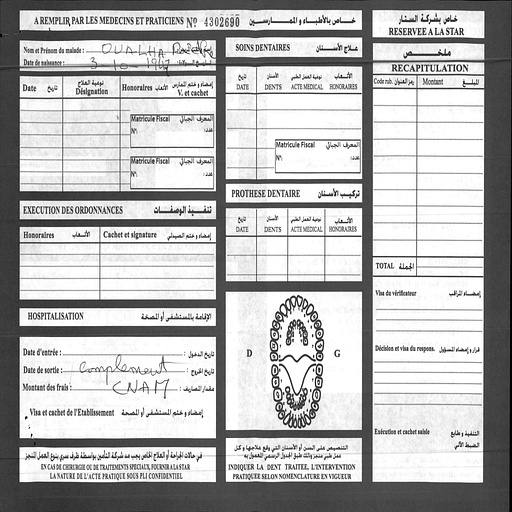 A REMPLIR PAR LES MEDECINS ET PRATICIENS N° 4302690 خاص بالأطباء و الممارسين
Nom et Prénom du malade : OUALHA
Date de naissance : 3-10-19
Date تاريخ Désignation نوعية العلاج Honoraires الأتعاب V. et cachet إمضاء و ختم الممارس
Matricule Fiscal المعرف الجبائي
N°: عدد:
Matricule Fiscal المعرف الجبائي
N°: عدد:
EXECUTION DES ORDONNANCES تنفيذ الوصفات
Honoraires الأتعاب Cachet et signature إمضاء و ختم الصيدلي
HOSPITALISATION الإقامة بالمستشفى أو المصحة
Date d'entrée : تاريخ الدخول :
Date de sortie : complement تاريخ الخروج :
Montant des frais : CNAM مقدار المصاريف :
Visa et cachet de l'Etablissement إمضاء و ختم المستشفى أو المصحة
في حالات الجراحة أو العلاج الخاص يجب مد شركة التأمين بواسطة ظرف سري بنوع العمل المنجز
EN CAS DE CHIRURGIE OU DE TRAITEMENTS SPECIAUX, FOURNIR A LA STAR
LA NATURE DE L'ACTE PRATIQUE SOUS PLI CONFIDENTIEL
SOINS DENTAIRES علاج الأسنان
DATE تاريخ DENTS الأسنان ACTE MEDICAL نوعية العمل الطبي HONORAIRES الأتعاب
Matricule Fiscal المعرف الجبائي
N°: عدد:
PROTHESE DENTAIRE تركيب الأسنان
DATE تاريخ DENTS الأسنان ACTE MEDICAL نوعية العمل الطبي HONORAIRES الأتعاب
D G
INDIQUER LA DENT TRAITEE, L'INTERVENTION
PRATIQUEE SELON NOMENCLATURE EN VIGUEUR
خاص بشركة الستار
RESERVEE A LA STAR
ملخص
RECAPITULATION
Code rub. رمز العنوان Montant المبلغ
TOTAL الجملة
Visa du vérificateur إمضاء المراقب
Décision et visa du respons. قرار و إمضاء المسؤول
Exécution et cachet saisie التنفيذ و طابع
الضبط الآلي